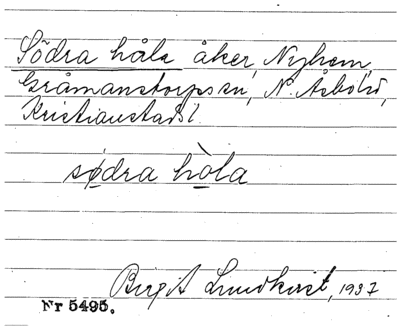 Södra håla åker, Nyhem,
Gråmanstorps sn, N. Åsbo hd,
Kristianstads l.
sødra hòla
Birgit Lundkvist, 1937
Nr 5495.